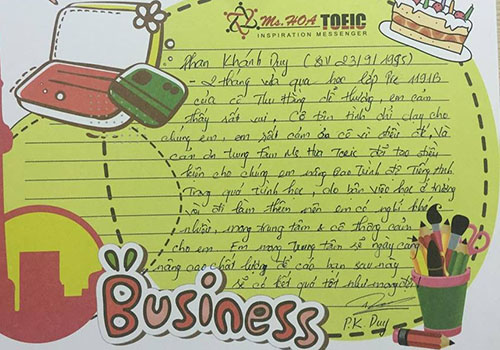 Ms. HOA TOEIC
INSPIRATION MESSENGER
Phan Khánh Duy (SV 23/9/1995)
- 2 tháng vừa qua học lớp Pre 119B
của cô Thu Hằng dễ thương, em cảm
thấy rất vui. Cô tận tình chỉ dạy cho
chúng em, em rất cảm ơn cô vì điều đó. Và
cảm ơn trung tâm Ms Hoa Toeic đã tạo điều
kiện cho chúng em nâng cao trình độ Tiếng Anh
Trong quá trình học, do bận việc học ở trường
và đi làm thêm nên em có nghỉ khá
nhiều, mong trung tâm & cô thông cảm
cho em. Em mong Trung tâm sẽ ngày càng
nâng cao chất lượng để các bạn sau này
sẽ có kết quả tốt như mong đợi!
P.K. Duy
Business